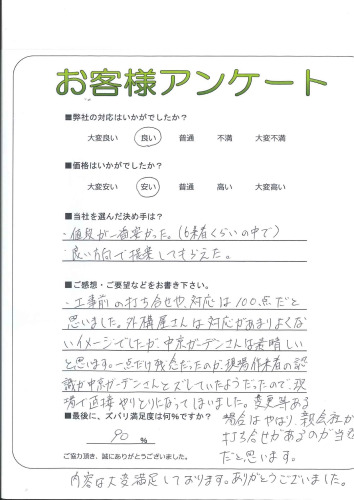 お客様アンケート
■弊社の対応はいかがでしたか？
大変良い 良い 普通 不満 大変不満
■価格はいかがでしたか？
大変安い 安い 普通 高い 大変高い
■当社を選んだ決め手は？
・値段が一番安かった。（6業者くらいの中で）
・良い方向で提案してもらえた。
■ご感想・ご要望などをお書き下さい。
・工事前の打ち合せや、対応は100点だと
思いました。外構屋さんは対応があまりよくな
いイメージでしたが、中京ガーデンさんは素晴しい
と思います。一点だけ残念だったのが、現場作業者の認
識が中京ガーデンさんとズレていたようだったので、現
場で直接やりとりになってしまいました。変更等ある
場合はやはり、親会社が
打ち合せがあるのが当
だと思います。
■最後に、ズバリ満足度は何％ですか？
90 ％
ご協力頂き、誠にありがとうございました。
内容は大変満足しております。ありがとうございました。